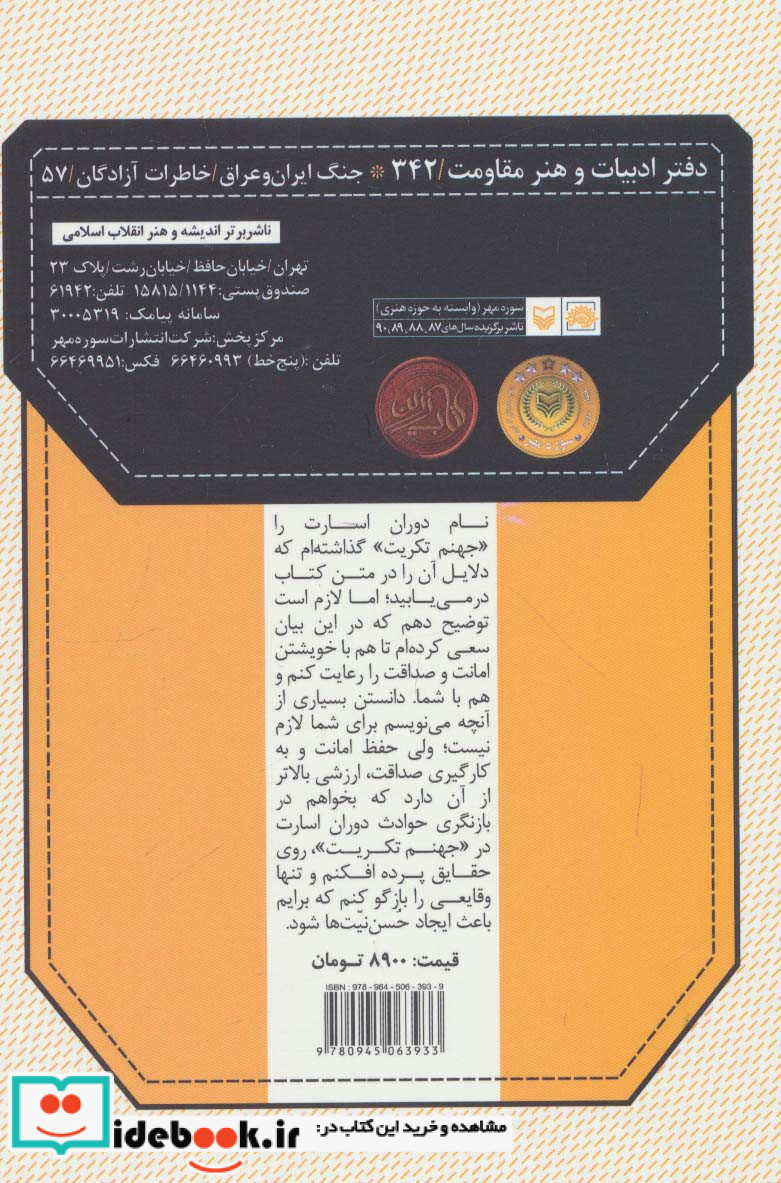 دفتر ادبیات و هنر مقاومت/۳۴۲ * جنگ ایران و عراق/خاطرات آزادگان/۵۷
ناشر برتر اندیشه و هنر انقلاب اسلامی
تهران/خیابان حافظ/خیابان رشت/پلاک ۲۳
صندوق پستی: ۱۵۸۱۵/۱۱۴۴ تلفن: ۶۱۹۴۲
سامانه پیامک: ۳۰۰۰۵۳۱۹
مرکز پخش: شرکت انتشارات سوره مهر
تلفن: (پنج خط) ۶۶۴۶۰۹۹۳ فکس: ۶۶۴۶۹۹۵۱
سوره مهر (وابسته به حوزه هنری)
ناشر برگزیده سال‌های ۸۷، ۸۸، ۸۹، ۹۰
سوره مهر
نام دوران اسارت را
«جهنم تکریت» گذاشته‌ام که
دلایل آن را در متن کتاب
درمی‌یابید؛ اما لازم است
توضیح دهم که در این بیان
سعی کرده‌ام تا هم با خویشتن
امانت و صداقت را رعایت کنم و
هم با شما. دانستن بسیاری از
آنچه می‌نویسم برای شما لازم
نیست؛ ولی حفظ امانت و به
کارگیری صداقت، ارزشی بالاتر
از آن دارد که بخواهم در
بازنگری حوادث دوران اسارت
در «جهنم تکریت»، روی
حقایق پرده افکنم و تنها
وقایعی را بازگو کنم که برایم
باعث ایجاد حُسن‌نیّت‌ها شود.
قیمت: ۸۹۰۰ تومان
ISBN : 978 - 964 - 506 - 393 - 9
9 780945 063933
مشاهده و خرید این کتاب در:
idebook.ir